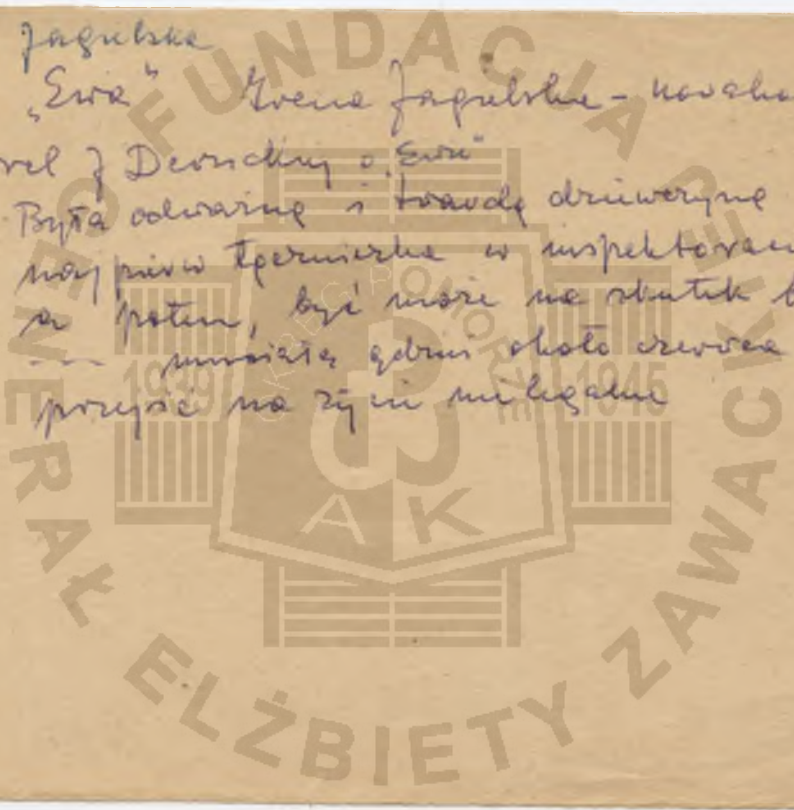 Jagielska
„Ewa" Irena Jagielska - Nowako
rel J Deruckiej o „Ewie"
Była odważną i twardą dziewczyną
najpierw łączniczka w inspektorac
a potem, być może na skutek
---- musiała gdzieś około czerwca
przejść na życie nielegalne
FUNDACJA GENERAŁ ELŻBIETY ZAWACKIEJ
OKRĘG POMORZE
1939 1945
AK